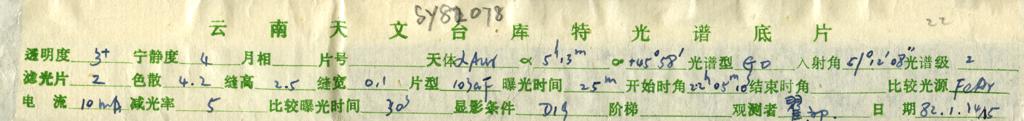 SY82078
云南天文台库特光谱底片
22
透明度 3+ 宁静度 4 月相 片号 天体 αAur α 5h13m α +45°58' 光谱型 G0 入射角 51°12'08" 光谱级 2
滤光片 2 色散 4.2 缝高 2.5 缝宽 0.1 片型 103aF 曝光时间 25m 开始时角 22h05m10 结束时角 比较光源 FeAr
电流 10mA 减光率 5 比较曝光时间 30s 显影条件 D19 阶梯 观测者 日期 82.1.14/15